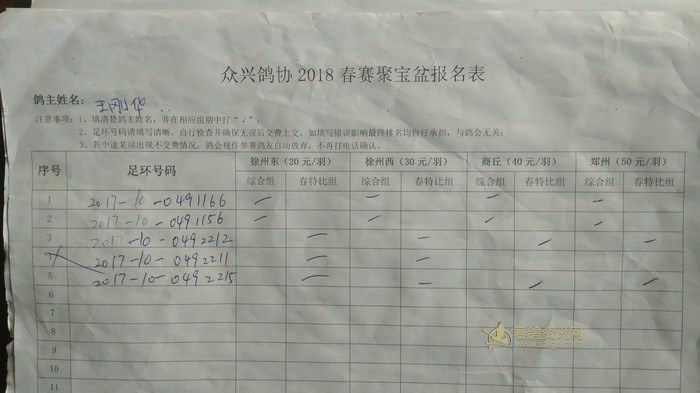 众兴鸽协 2018 春赛聚宝盆报名表
鸽主姓名：王刚华
注意事项：1、填清楚鸽主姓名，并在相应组别中打"√"；
2、足环号码请填写清晰，自行检查并确保无误后交费上交，如填写错误影响最终排名均自行承担，与鸽会无关；
3、若中途某站出现不交费情况，鸽会视作参赛鸽友自动放弃，不再打电话确认。
序号 足环号码 徐州东（20 元/羽） 徐州西（30 元/羽） 商丘（40 元/羽） 郑州（50 元/羽）
综合组 春特比组 综合组 春特比组 综合组 春特比组 综合组 春特比组
1 2017-10-0491166 — — — —
2 2017-10-0491156 — — — —
3 2017-10-0492212 — — — —
2017-10-0492211 — —
5 2017-10-0492215 — — — —
6
7
8
9
10
11